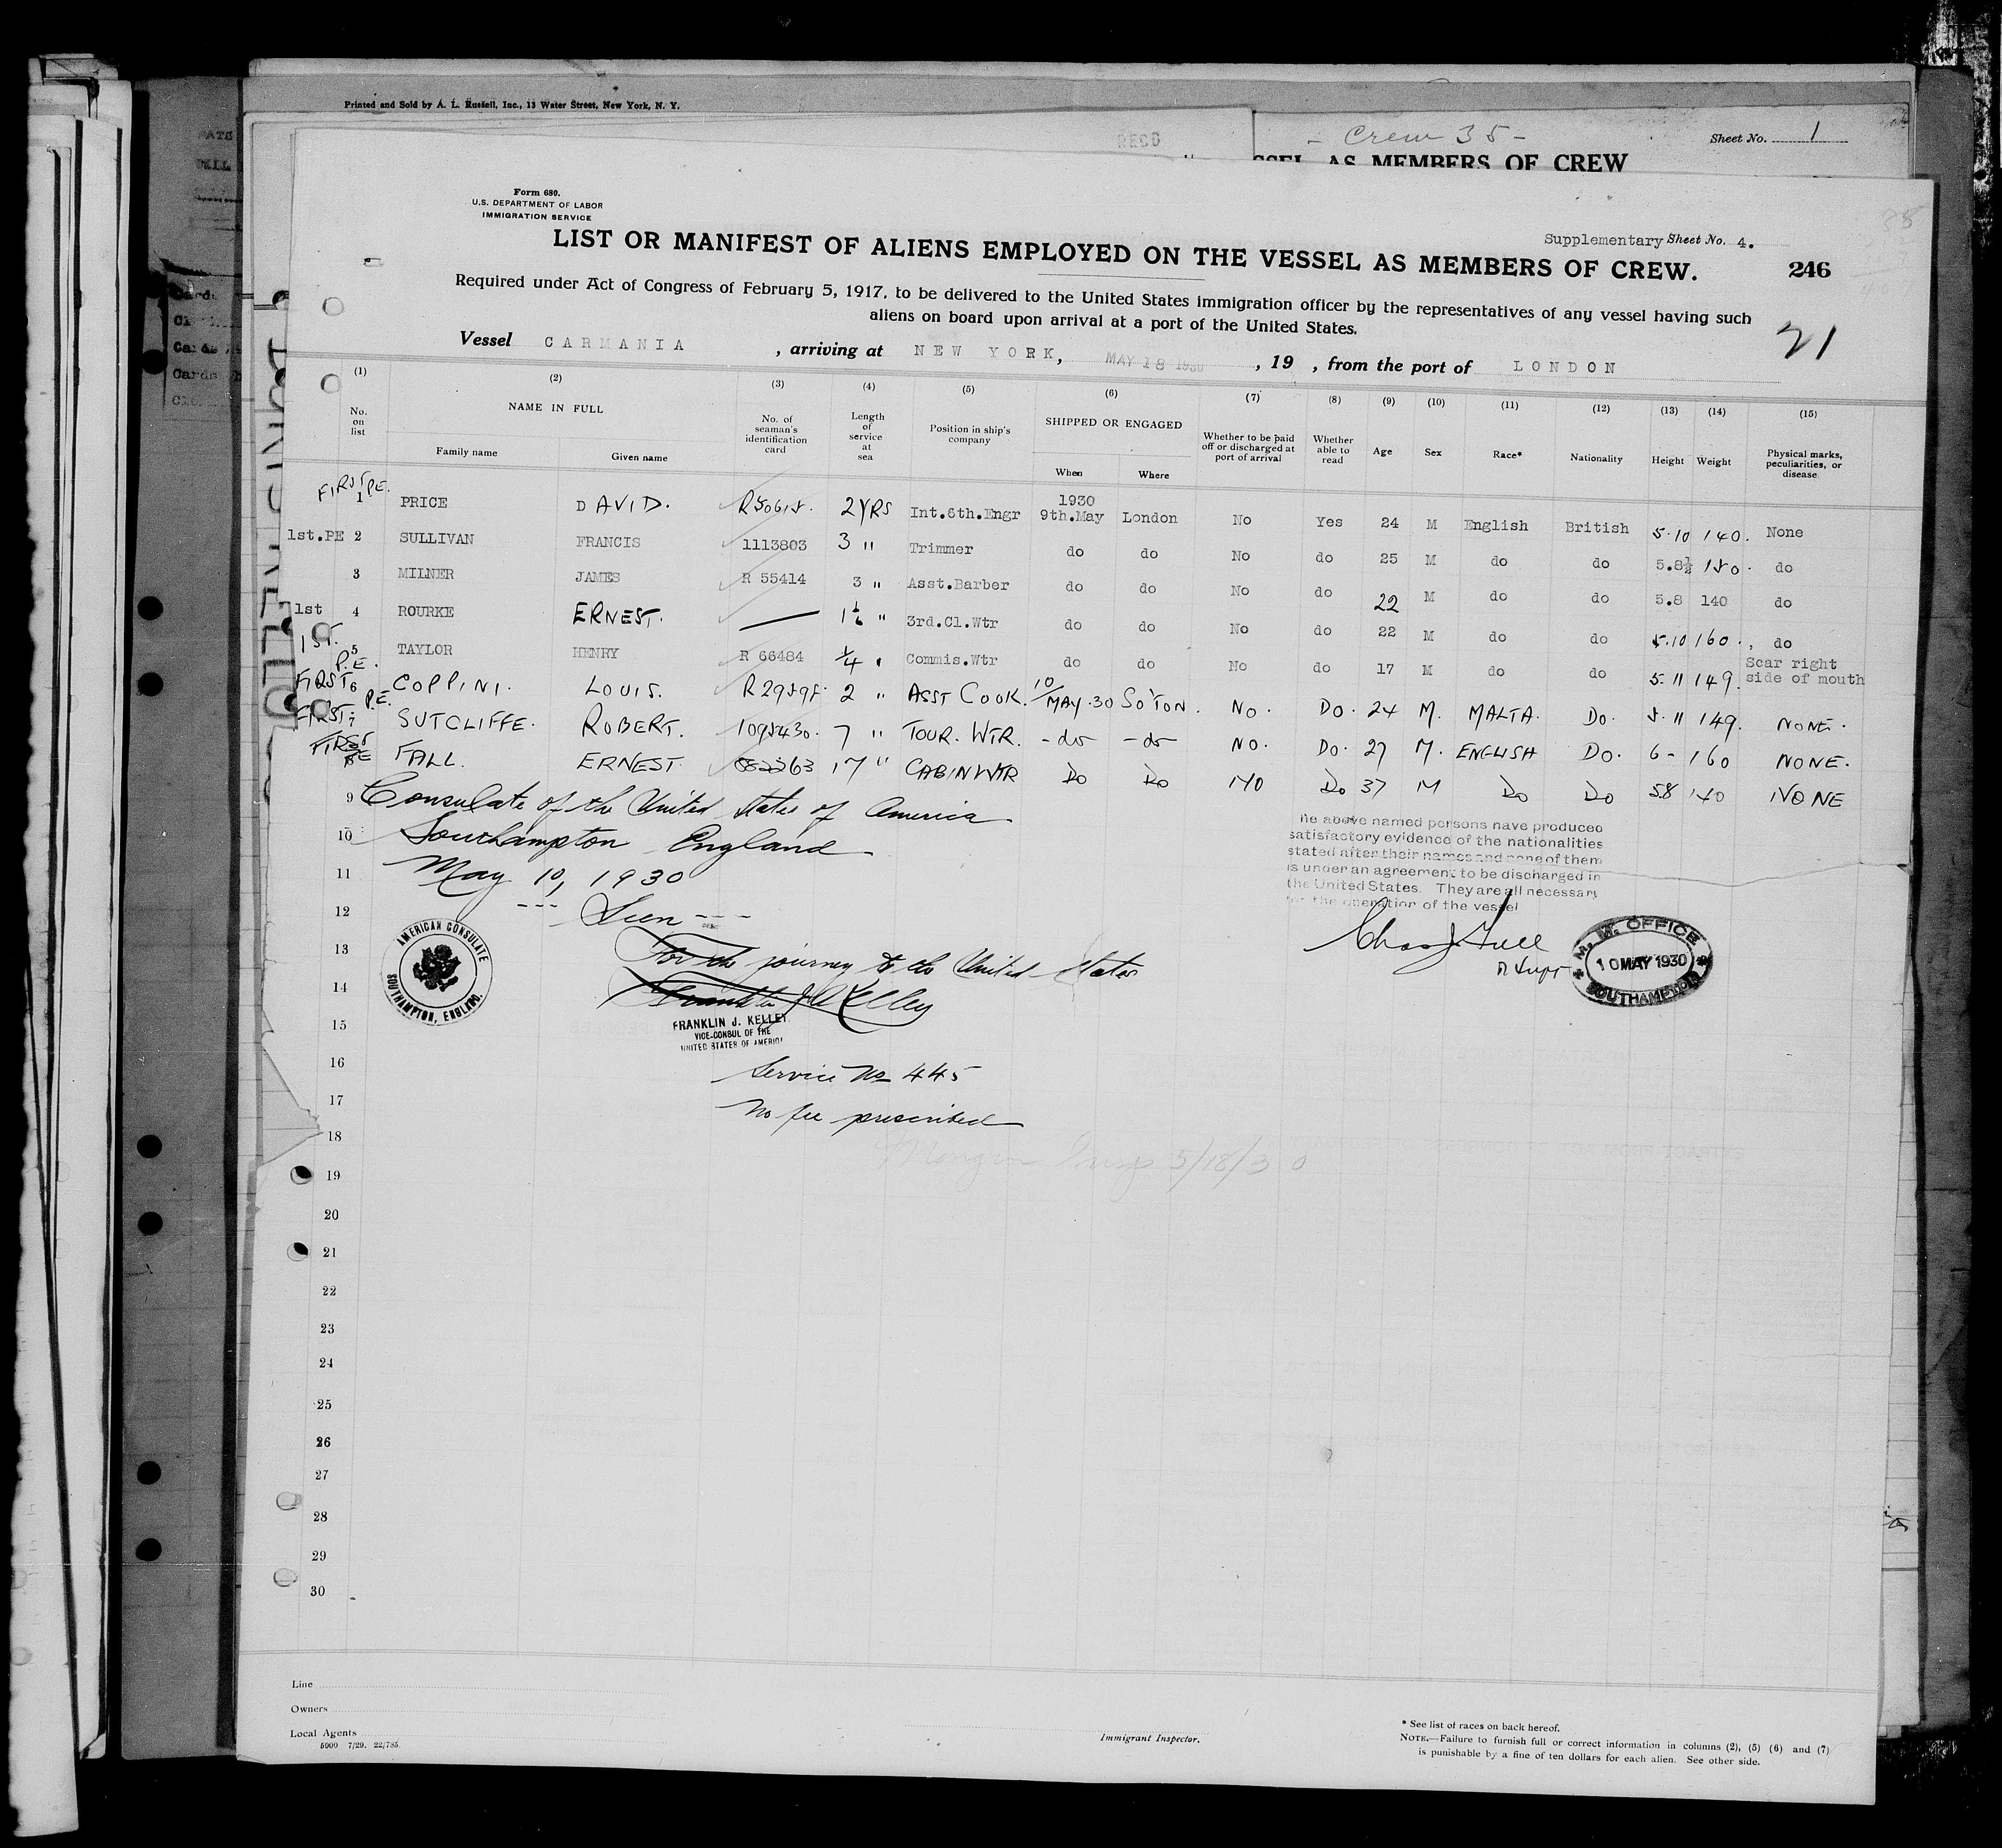 Printed and Sold by A. L. Russell, Inc., 13 Water Street, New York, N. Y.
RECD
- Crew 35 -
Sheet No. 1
SSEL AS MEMBERS OF CREW
Form 680.
U.S. DEPARTMENT OF LABOR
IMMIGRATION SERVICE
Supplementary Sheet No. 4.
LIST OR MANIFEST OF ALIENS EMPLOYED ON THE VESSEL AS MEMBERS OF CREW.
246
Required under Act of Congress of February 5, 1917, to be delivered to the United States immigration officer by the representatives of any vessel having such
aliens on board upon arrival at a port of the United States.
21
Vessel CARMANIA, arriving at NEW YORK, MAY 18 1930, 19 , from the port of LONDON
(1) (2) (3) (4) (5) (6) (7) (8) (9) (10) (11) (12) (13) (14) (15)
No. on list NAME IN FULL Family name Given name No. of seaman's identification card Length of service at sea Position in ship's company SHIPPED OR ENGAGED When Where Whether to be paid off or discharged at port of arrival Whether able to read Age Sex Race* Nationality Height Weight Physical marks, peculiarities, or disease
FIRST PE. 1 PRICE DAVID. 2 YRS Int.6th.Engr 1930 9th.May London No Yes 24 M English British 5.10 140. None
1st.PE 2 SULLIVAN FRANCIS 1113803 3 " Trimmer do do No do 25 M do do 5.8½ 150. do
3 MILNER JAMES R 55414 3 " Asst.Barber do do No do 22 M do do 5.8 140 do
1st 4 ROURKE ERNEST. — " 3rd.Cl.Wtr do do No do 22 M do do 5.10 160. do
1ST. P.E. 5 TAYLOR HENRY R 66484 ¼ " Commis.Wtr do do No do 17 M do do 5.11 149. Scar right side of mouth
FIRST P.E. 6 COPPINI. LOUIS. 2 " ASST COOK. 10/MAY.30 SO'TON. NO. DO. 24 M. MALTA. DO. 5.11 149. NONE.
FIRST 7 SUTCLIFFE. ROBERT. 1095430. 7 " TOUR. WTR. -do- -do- NO. DO. 27 M. ENGLISH DO. 6- 160 NONE.
FIRST PE FALL. ERNEST 17 " CABIN WTR Do Do NO Do 37 M Do Do 58 140 NONE
9 Consulate of the United States of America
10 Southampton England
11 May 10, 1930
12 --- Seen ---
13 For the journey to the United States
14 Franklin J Kelley
15 FRANKLIN J. KELLEY
VICE-CONSUL OF THE
UNITED STATES OF AMERICA
16 Service No 445
17 No fee prescribed
18
Insp 5/18/30
AMERICAN CONSULATE SOUTHAMPTON, ENGLAND.
he above named persons have produced
satisfactory evidence of the nationalities
stated after their names and none of them
is under an agreement to be discharged in
the United States. They are all necessary
for the operation of the vessel
M. M. OFFICE
10 MAY 1930
SOUTHAMPTON
19
20
21
22
23
24
25
26
27
28
29
30
Line
Owners
Local Agents
5000 7/29. 22/785.
Immigrant Inspector.
* See list of races on back hereof.
NOTE.—Failure to furnish full or correct information in columns (2), (5) (6) and (7)
is punishable by a fine of ten dollars for each alien. See other side.